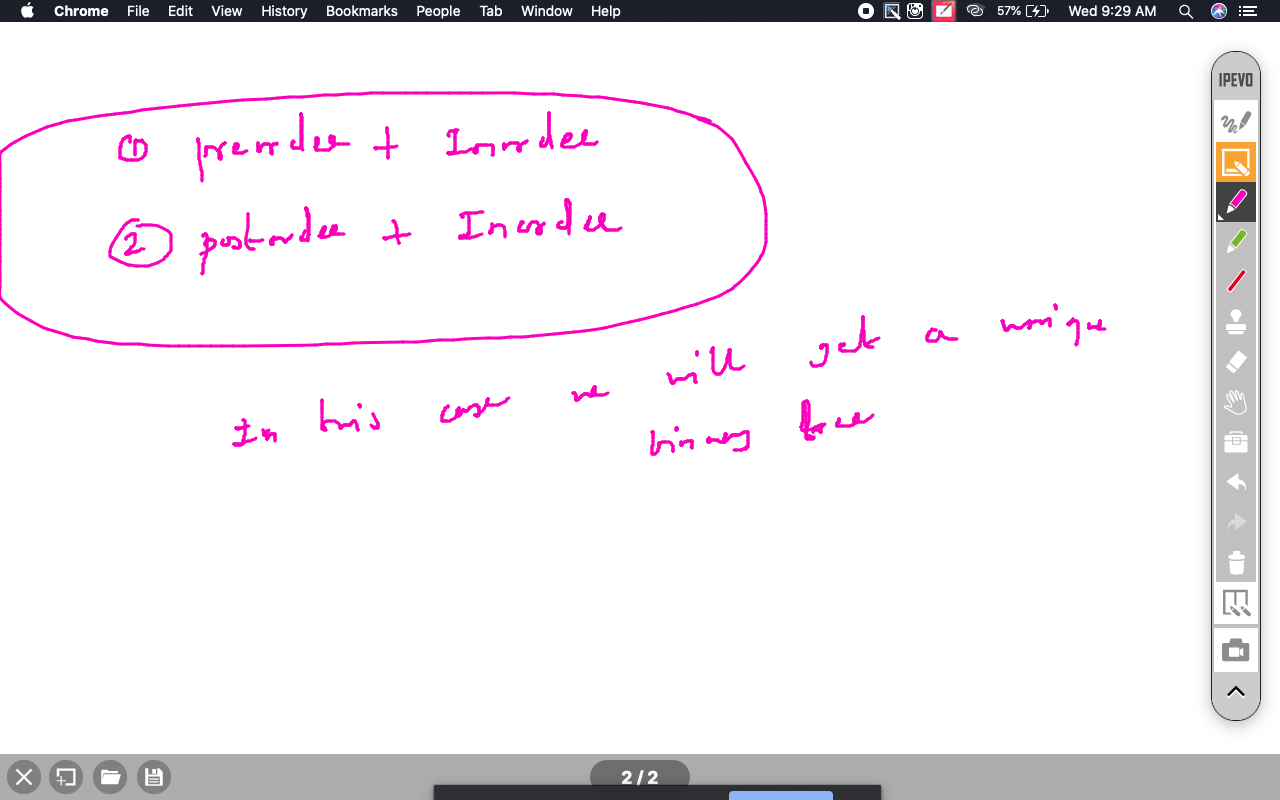 Chrome File Edit View History Bookmarks People Tab Window Help 57% Wed 9:29 AM
IPEVO
① preorder + Inorder
② postorder + Inorder
In this case we will get a unique
binary tree
2 / 2